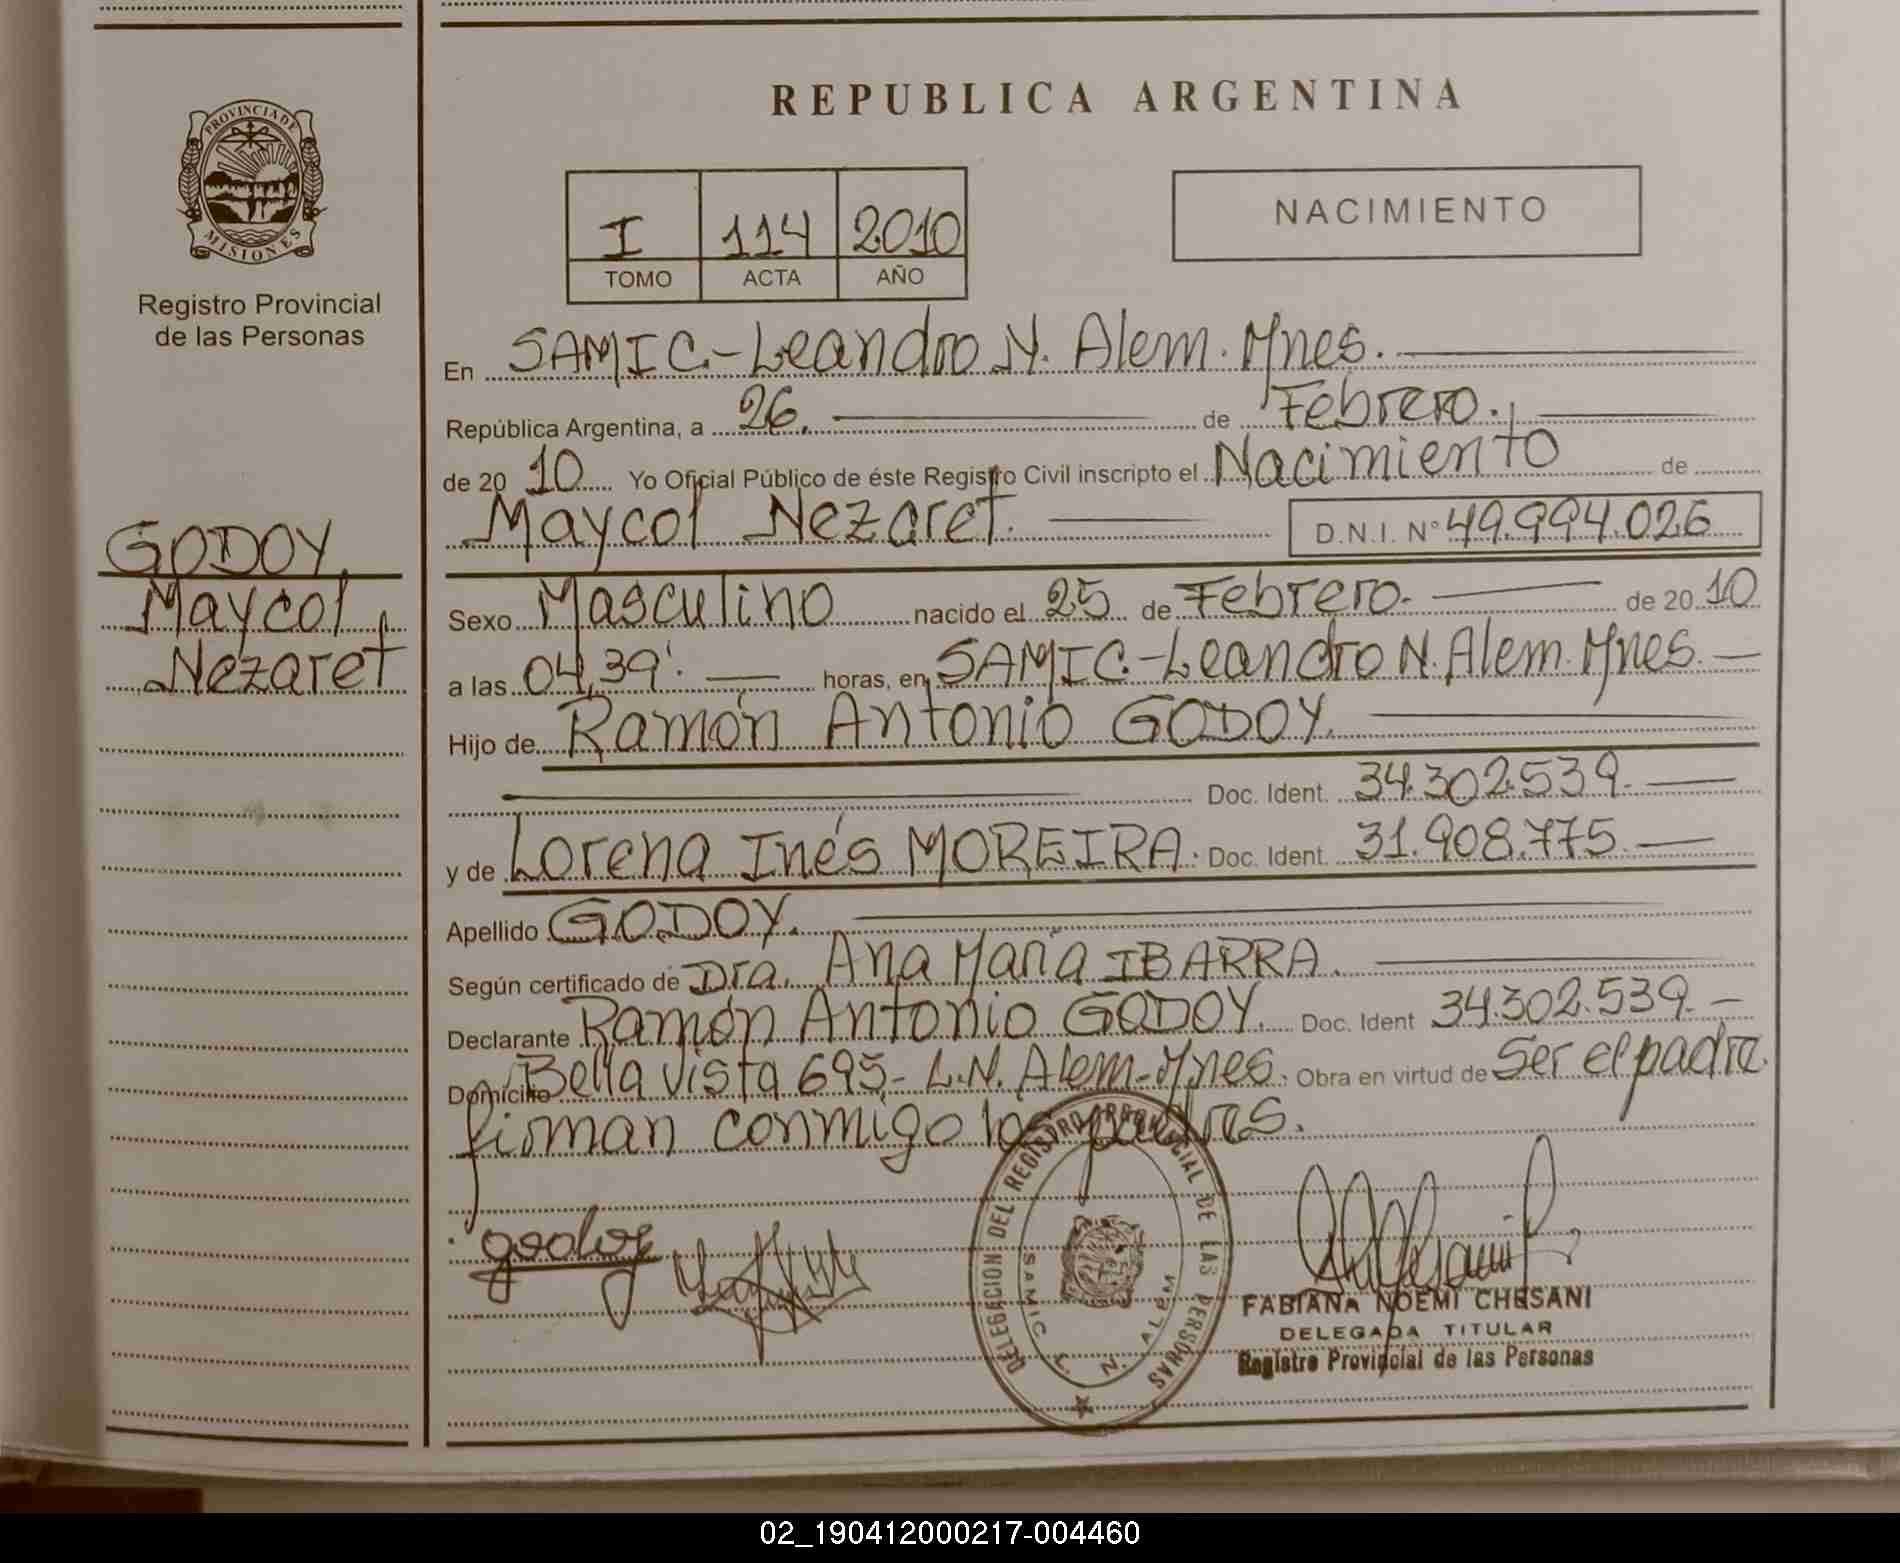 REPUBLICA ARGENTINA
PROVINCIA DE MISIONES
Registro Provincial
de las Personas
I 114 2010
TOMO ACTA AÑO
NACIMIENTO
En SAMIC.-Leandro N. Alem. Mnes.
República Argentina, a 26. de Febrero.
de 20 10 Yo Oficial Público de éste Registro Civil inscripto el Nacimiento de
Maycol Nezaret. D.N.I. N° 49.994.026
GODOY,
Maycol
Nezaret
Sexo Masculino nacido el 25 de Febrero. de 20 10
a las 04,39'. horas, en SAMIC.-Leandro N. Alem. Mnes.
Hijo de Ramón Antonio GODOY.
Doc. Ident. 34.302.539.
y de Lorena Inés MOREIRA. Doc. Ident. 31.908.775.
Apellido GODOY.
Según certificado de Dra. Ana María IBARRA.
Declarante Ramón Antonio GODOY. Doc. Ident 34.302.539.-
Domicilio Bella Vista 695.- L.N. Alem-Mnes. Obra en virtud de Ser el padre.
firman conmigo los padres.
godoy
DELEGACION DEL REGISTRO PROVINCIAL DE LAS PERSONAS
SAMIC L. N. ALEM
FABIANA NOEMI CHESANI
DELEGADA TITULAR
Registro Provincial de las Personas
02_190412000217-004460